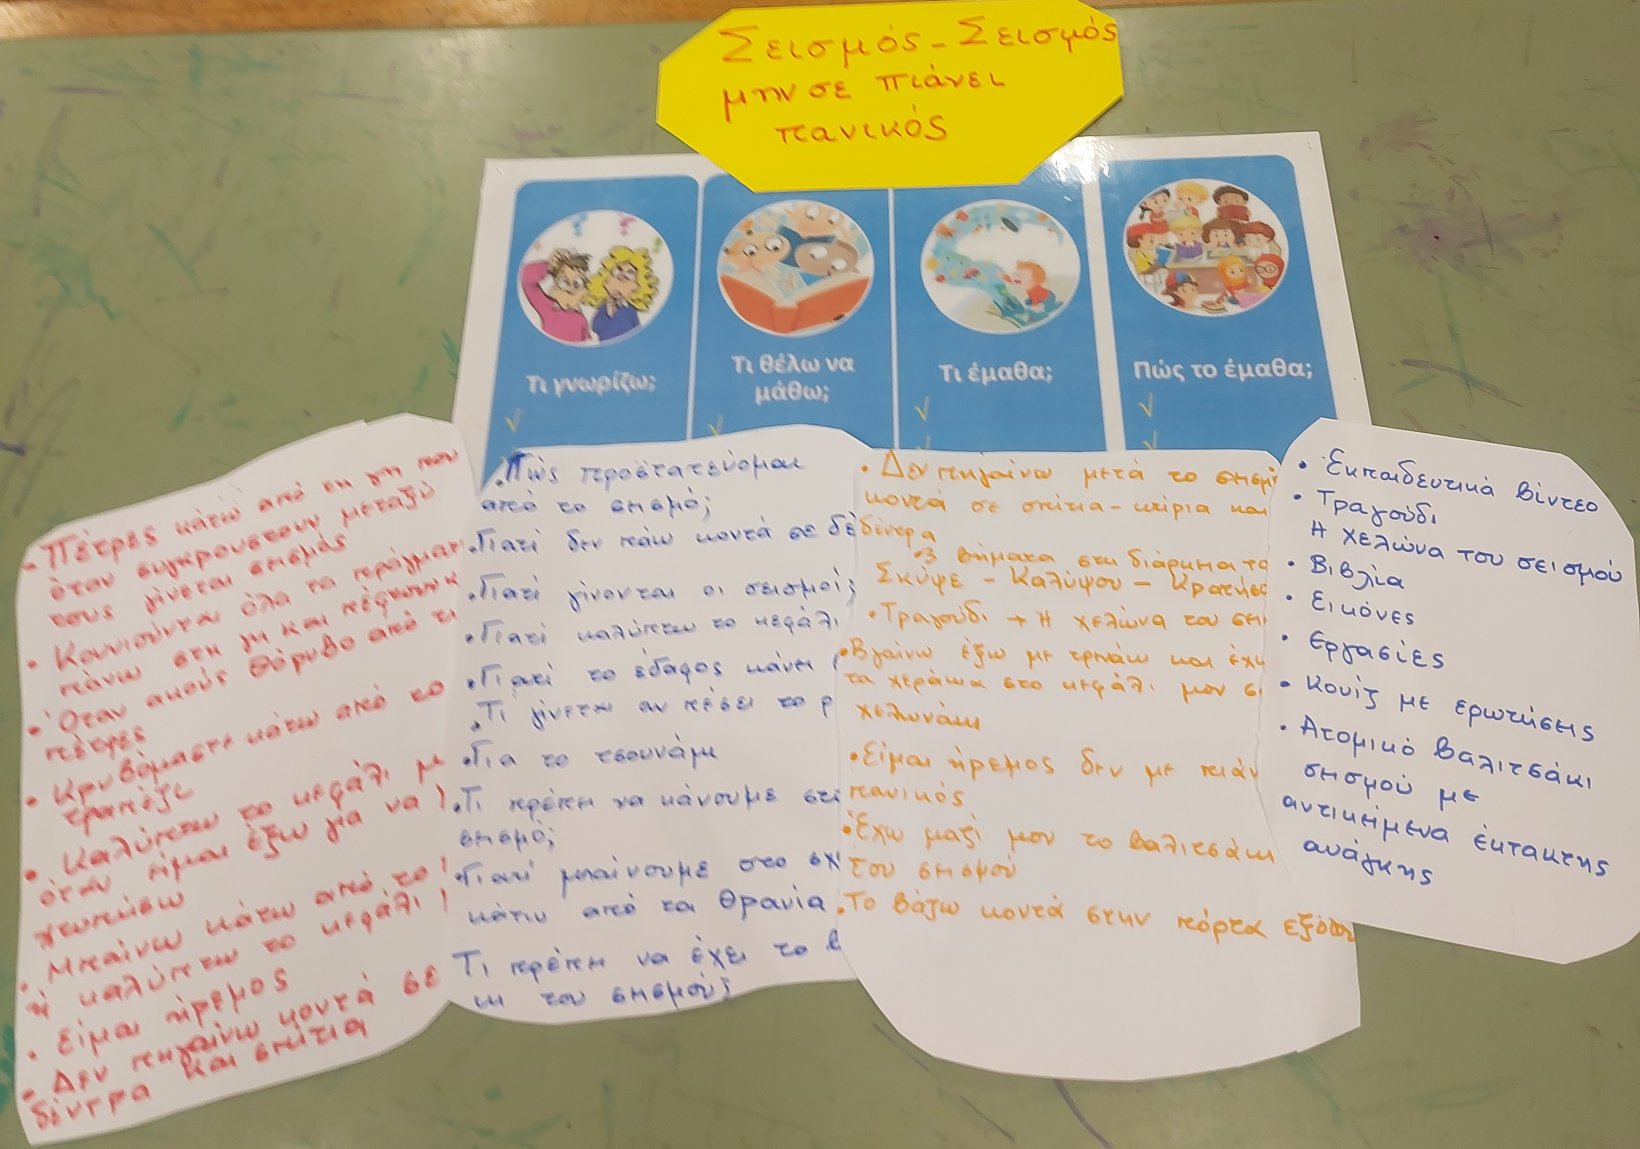 Σεισμός - Σεισμός
μην σε πιάνει
πανικός
Τι γνωρίζω;
Τι θέλω να
μάθω;
Τι έμαθα;
Πώς το έμαθα;
- Πέτρες κάτω από τη γη που
όταν συγκρουστουν μεταξύ
τους γίνεται σεισμός
• Κουνιούνται όλα τα πράγματ
πάνω στη γη και πέφτουν κ
• Όταν ακούς θόρυβο από τι
πέτρες
• Κρυβόμαστε κάτω από το
τραπέζι
• Καλύπτω το κεφάλι μ
όταν είμαι έξω για να
χτυπήσω
• Μπαίνω κάτω από το
ή καλύπτω το κεφάλι
• Είμαι ήρεμος
• Δεν πηγαίνω κοντά σε
δέντρα και σπίτια
• Πώς προστατεύομαι
από το σεισμό;
• Γιατί δεν πάω κοντά σε δέ
• Γιατί γίνονται οι σεισμοί;
• Γιατί καλύπτω το κεφάλι
• Γιατί το έδαφος κάνει
• Τι γίνεται αν πέσει το ρ
• Για το τσουνάμι
• Τι πρέπει να κάνουμε στο
σεισμό;
• Γιατί μπαίνουμε στο σχ
κάτω από τα θρανία
Τι πρέπει να έχει το β
κι του σεισμού;
• Δεν πηγαίνω μετά το σεισμό
κοντά σε σπίτια - κτίρια και
δέντρα
• 3 βήματα στη διάρκεια το
Σκύψε - Καλύψου - Κρατήσο
• Τραγούδι → Η χελώνα του σει
• Βγαίνω έξω με τρενάκι και έχω
τα χεράκια στο κεφάλι μου σ
χελωνάκι
• Είμαι ήρεμος δεν με πιάν
πανικός
• Έχω μαζί μου το βαλιτσάκι
του σεισμού
• Το βάζω κοντά στην πόρτα εξόδου
• Εκπαιδευτικά βίντεο
• Τραγούδι
Η χελώνα του σεισμού
• Βιβλία
• Εικόνες
• Εργασίες
• Κουίζ με ερωτήσεις
• Ατομικό βαλιτσάκι
σεισμού με
αντικείμενα έκτακτης
ανάγκης